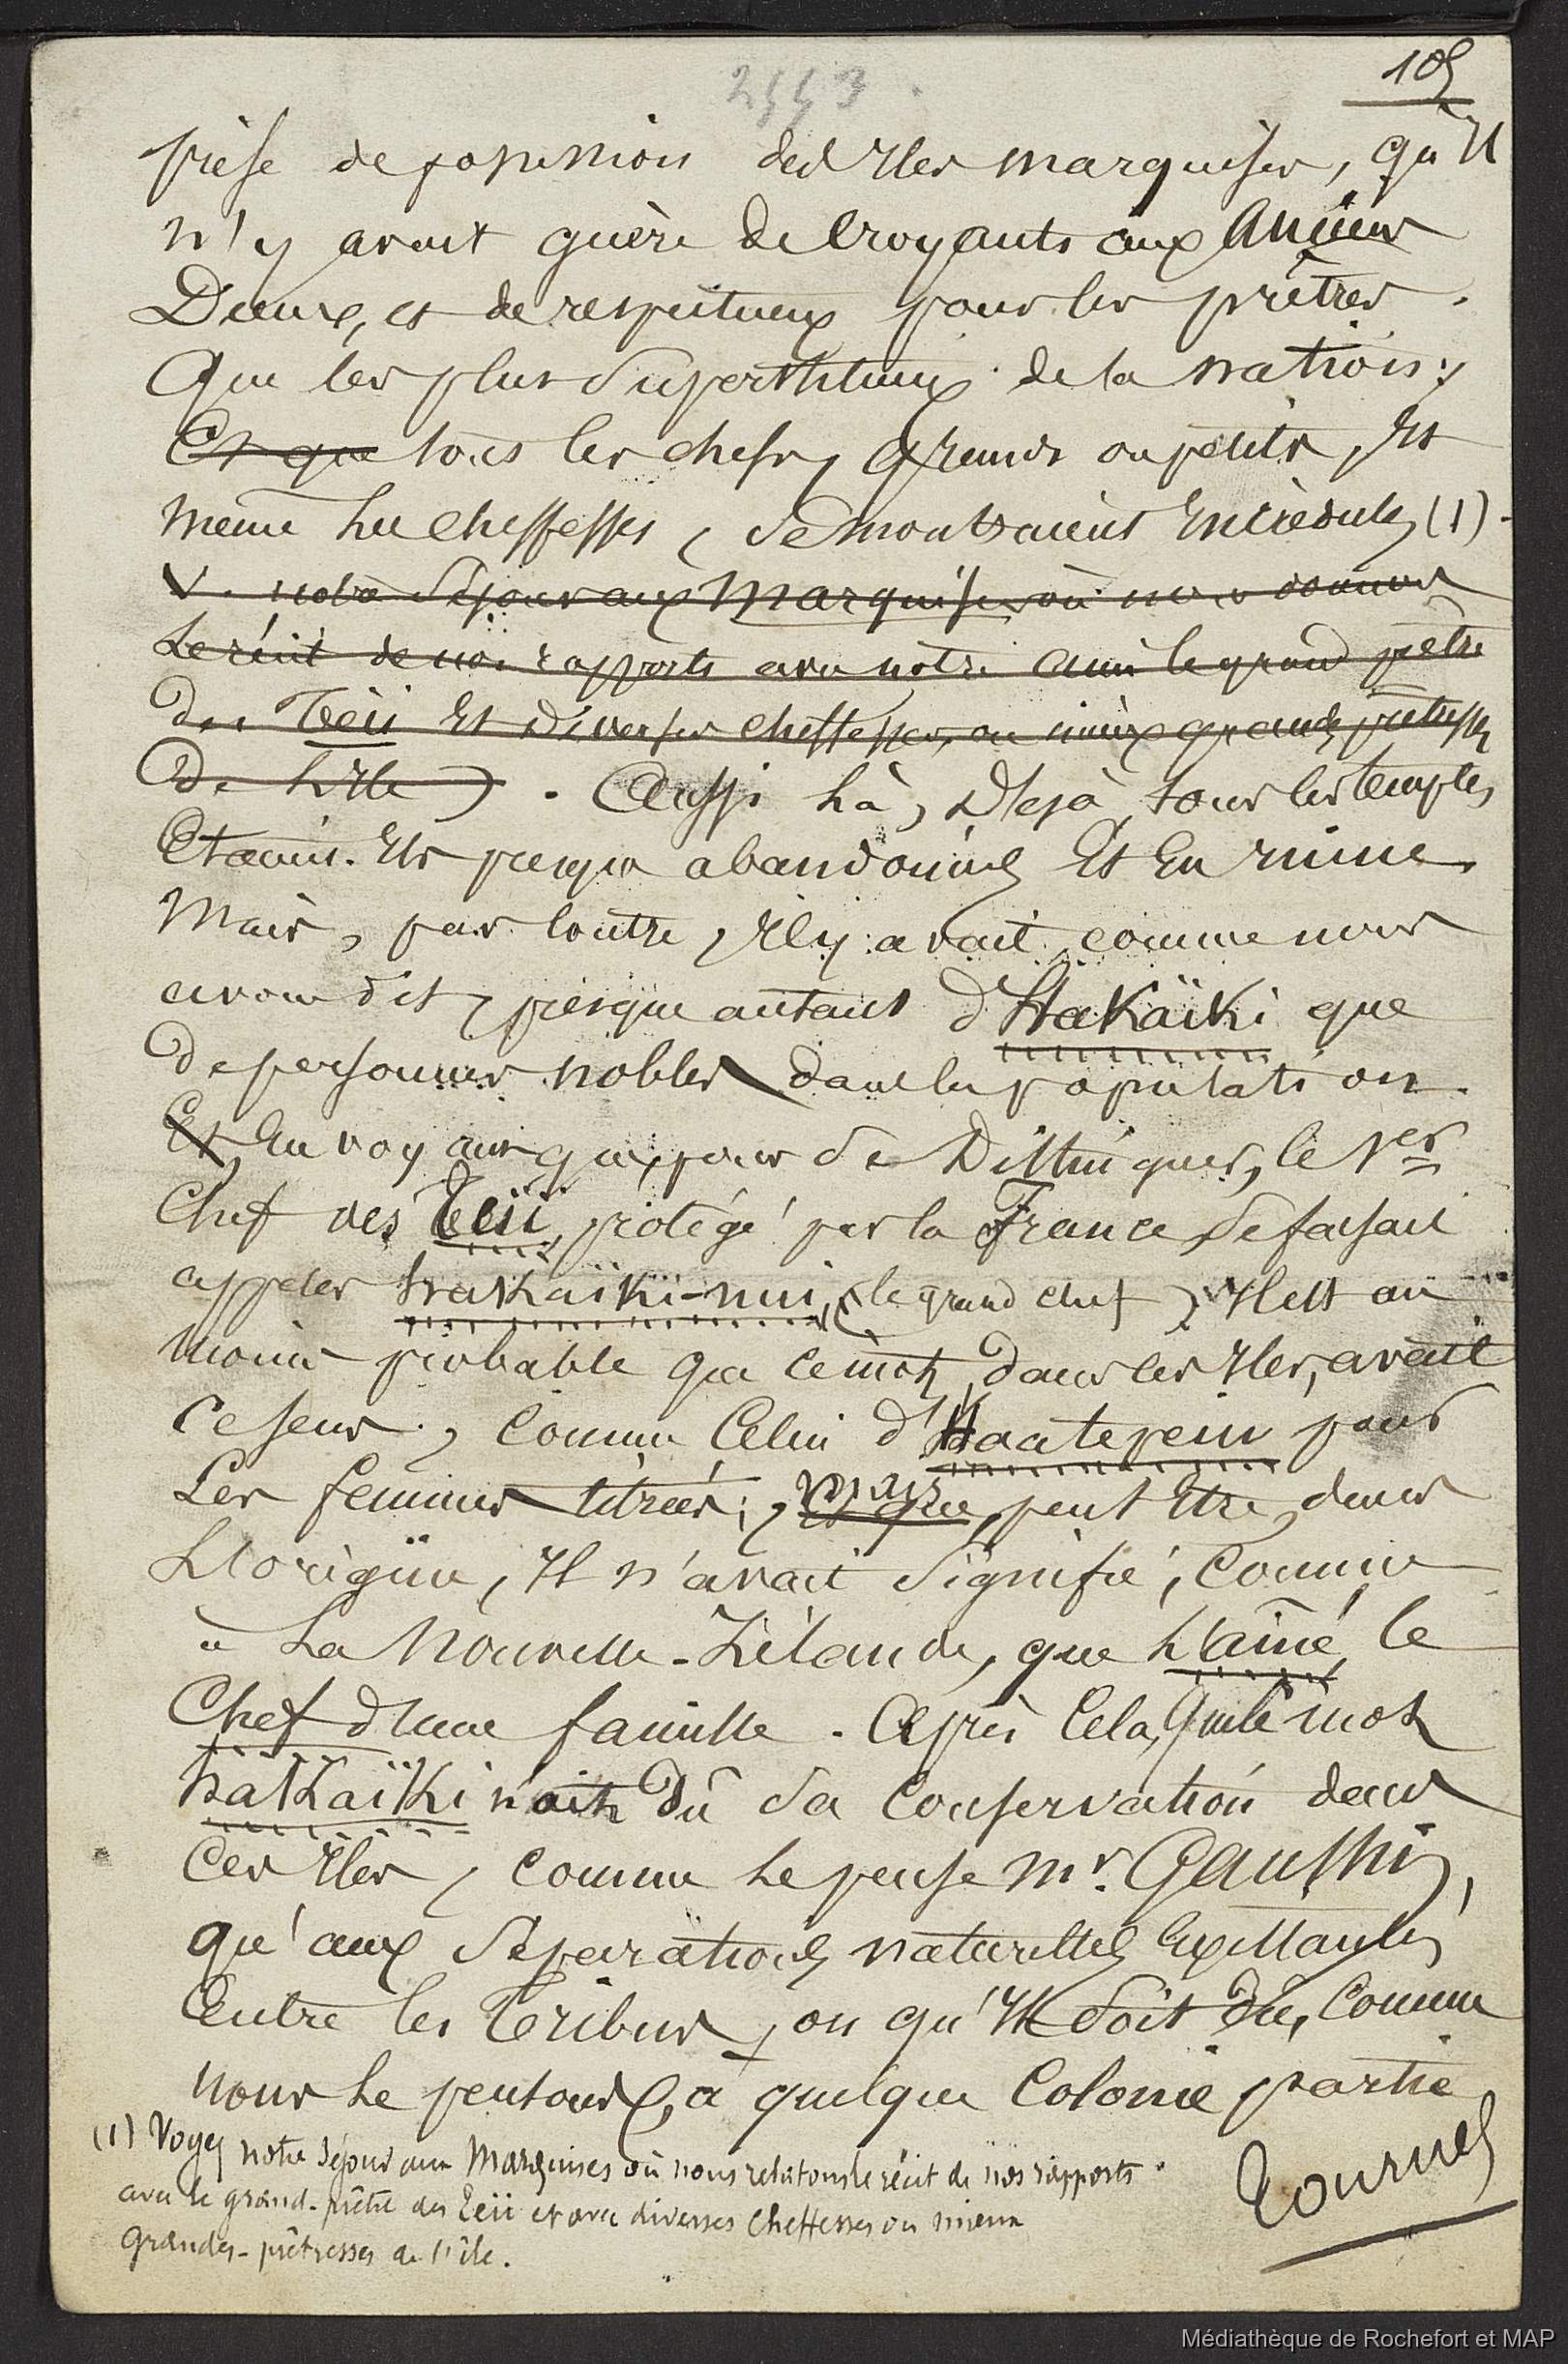 2553
105
prise de possession des Iles marquises, qu'Il
n'y avait guère de Croyants aux Anciens
Dieux, et de respectueux pour les prêtres
Que les plus Superstitieux de la nation;
Et que tous les chefs, Grands ou petits, Et
même les cheffesses, se montraient Incrédules (1).
V. notre Séjour aux Marquises où nous donnons
Le récit de nos rapports avec notre ami le grand prêtre
des Teïi Et Diverses cheffesses, ou mieux grandes prêtresses
De l'Ile). Aussi là, Déjà, tous les temples
Etaient Ils presque abandonnés Et En ruine.
Mais, par contre, Il y avait, comme nous
avons dit, presque autant d'Hakaïki que
de personnes nobles dans la population.
Et, En voyant que, pour se Distinguer, le 1er
Chef des Teïi, protégé par la France se faisait
appeler hakaïki-nui, (le grand chef), Il est au
moins probable que ce mot, dans les Iles, avait
ce sens, comme Celui d'Haatepeiu pour
Les femmes titrées; Et que mais, peut Etre, dans
L'origine, Il n'avait signifié, Comme
à La Nouvelle-Zélande, que L'aîné, le
Chef d'une famille. Après Cela, Que le mot
hakaïki n'ait dû sa Conservation dans
Ces Iles, comme Le pense Mr. Gaussin,
qu'aux Séparations naturelles Existantes
Entre les Tribus, ou qu'Il soit dû, Comme
nous Le pensons, à quelque Colonie partie
(1) Voyez notre séjour aux Marquises où nous relatons le récit de nos rapports
avec le grand-prêtre des Teïi et avec diverses Cheffesses ou mieux
grandes-prêtresses de l'île.
Tournez
Médiathèque de Rochefort et MAP